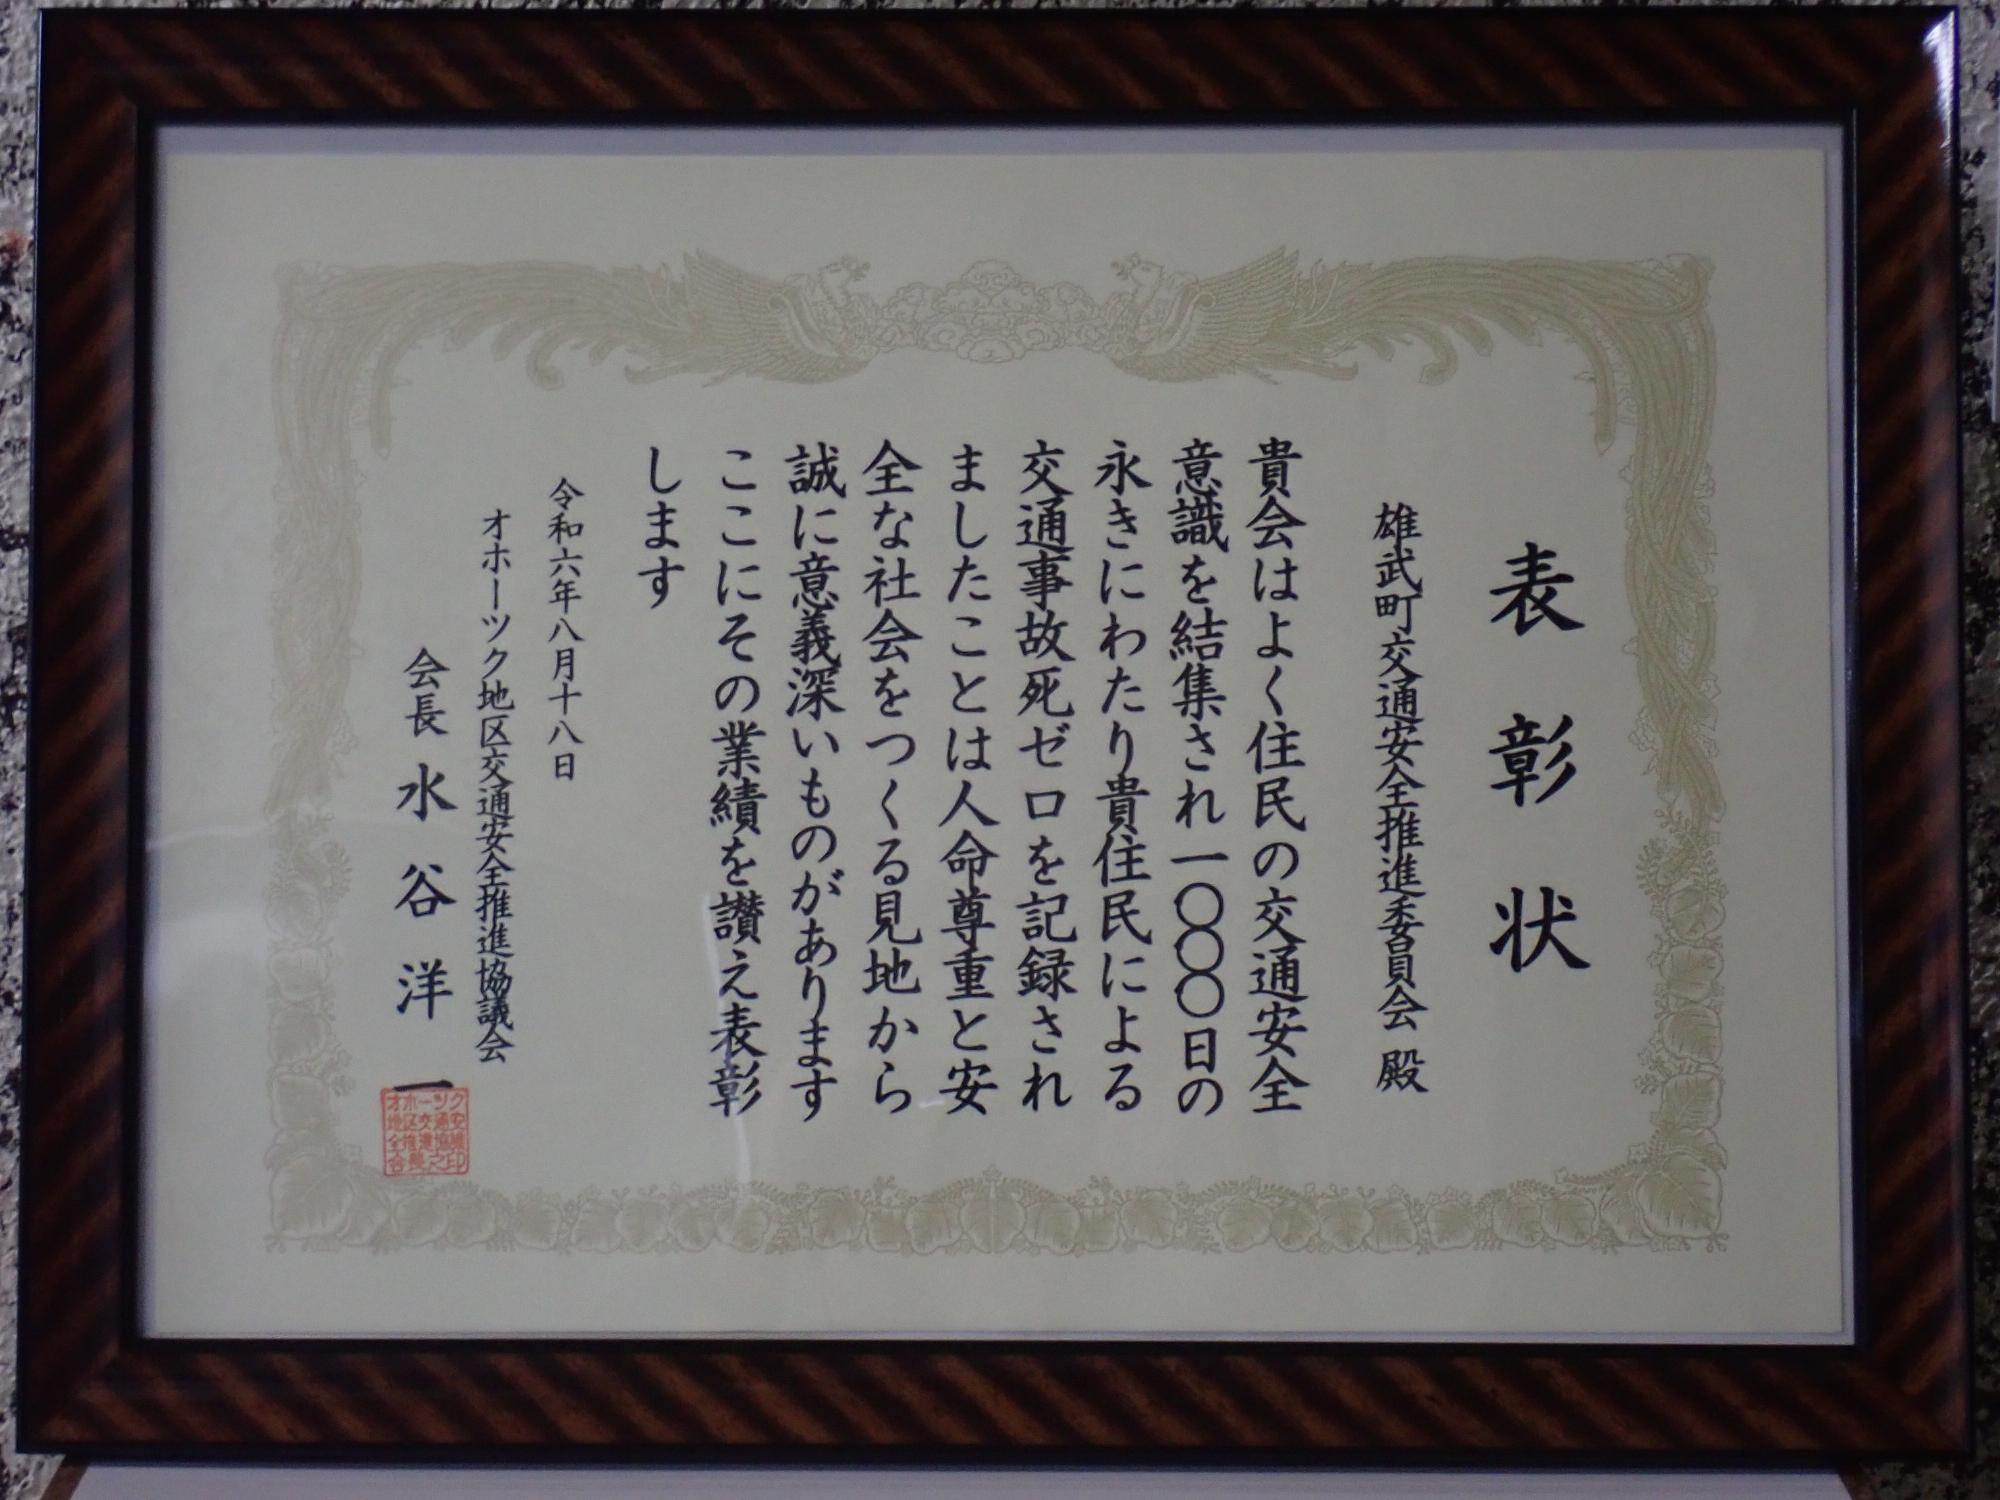 表彰状
雄武町交通安全推進委員会 殿
貴会はよく住民の交通安全
意識を結集され一〇〇〇日の
永きにわたり貴住民による
交通事故死ゼロを記録され
ましたことは人命尊重と安
全な社会をつくる見地から
誠に意義深いものがあります
ここにその業績を讃え表彰
します
令和六年八月十八日
オホーツク地区交通安全推進協議会
会長 水谷洋一